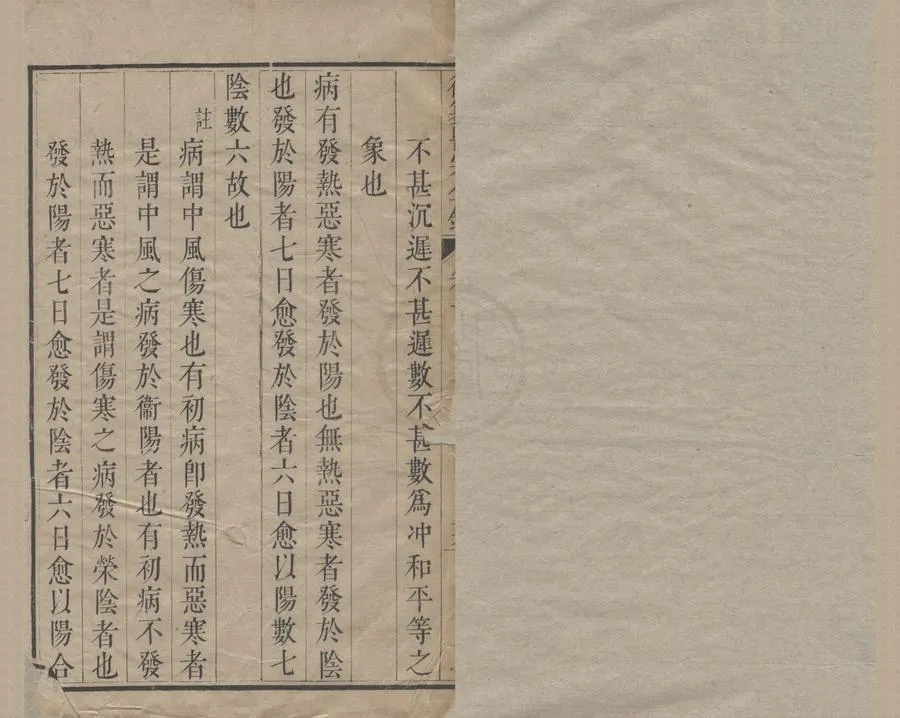 不甚沉遲不甚遲數不甚數爲冲和平等之
象也
病有發熱惡寒者發於陽也無熱惡寒者發於陰
也發於陽者七日愈發於陰者六日愈以陽數七
陰數六故也
註
病謂中風傷寒也有初病卽發熱而惡寒者
是謂中風之病發於衞陽者也有初病不發
熱而惡寒者是謂傷寒之病發於榮陰者也
發於陽者七日愈發於陰者六日愈以陽合